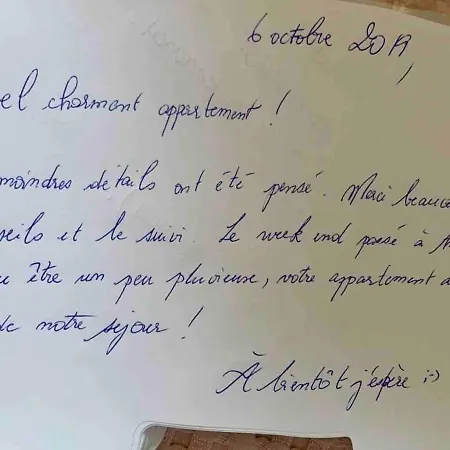 6 octobre 2019
el charmant appartement !
moindres détails ont été pensé. Merci beauco
seils et le suivi. Le week end passé à
u être un peu pluvieuse, votre appartement a
de notre séjour !
À bientôt j'espère :-)